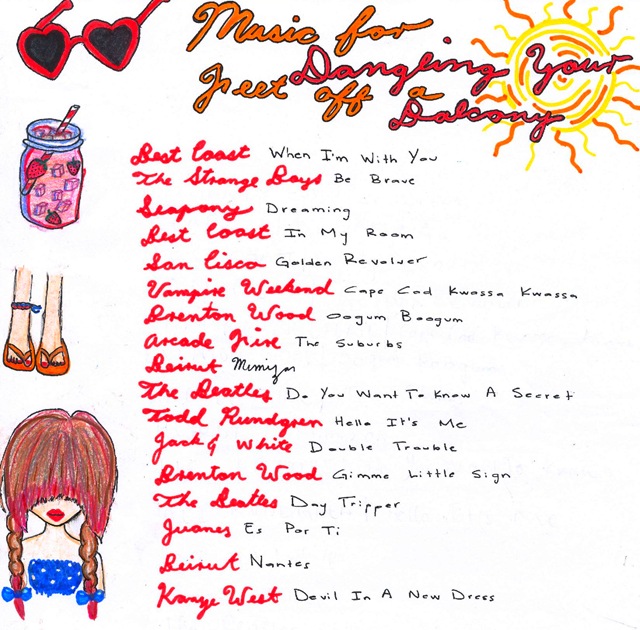 Music for
Dangling Your
Feet off a
Balcony
Best Coast When I'm With You
The Strange Boys Be Brave
Seapony Dreaming
Best Coast In My Room
San Cisco Golden Revolver
Vampire Weekend Cape Cod Kwassa Kwassa
Brenton Wood Oogum Boogum
Arcade Fire The Suburbs
Beirut Mimizan
The Beatles Do You Want To Know A Secret
Todd Rundgren Hello It's Me
Jack & White Double Trouble
Brenton Wood Gimme Little Sign
The Beatles Day Tripper
Juanes Es Por Ti
Beirut Nantes
Kanye West Devil In A New Dress